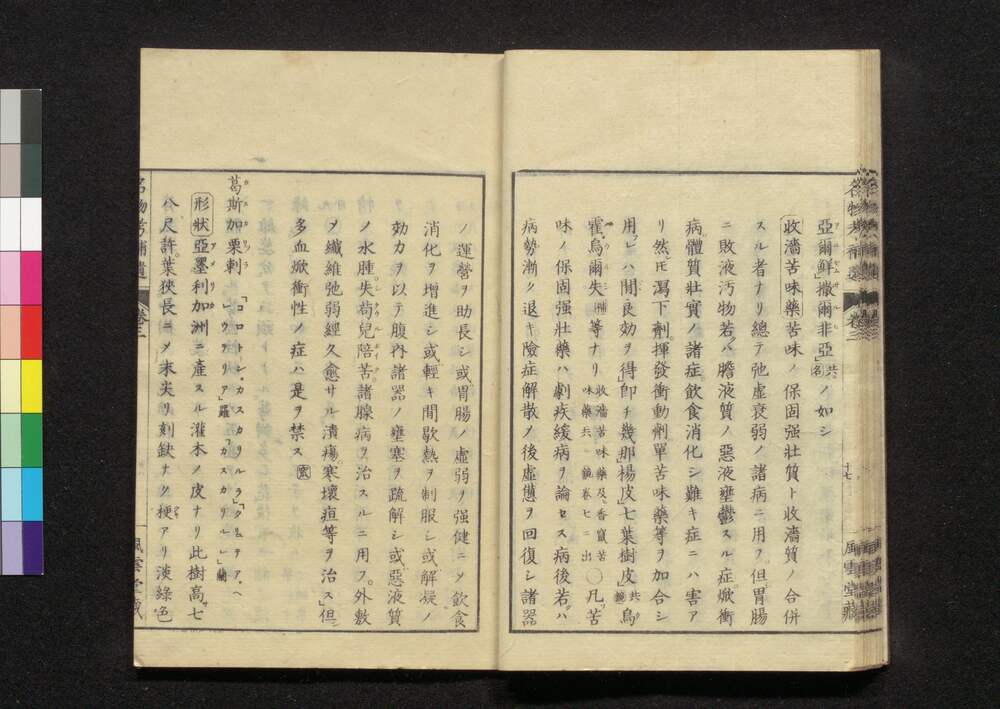 亞爾鮮「撒爾非亞」共名ノ如シ
收濇苦味藥 苦味ノ保固强壯質ト收濇質ノ合併
スル者ナリ總テ弛虛衰弱ノ諸病ニ用フ但胃腸
ニ敗液汚物若バ膽液質ノ惡液壅鬱スル症焮衝
病體質壯實ノ諸症飮食消化シ難キ症ニハ害ア
リ然𪜈瀉下劑揮發衝動劑單苦味藥等ヲ加合シ
用レバ間良効ヲ得卽チ幾那楊皮」七葉樹皮共鏡烏
霍烏爾失等ナリ收濇苦味藥及香竄苦味藥共鏡卷七ニ出〇凡苦
味ノ保固强壯藥ハ劇疾緩病ヲ論セス病後若ハ
病勢漸ク退キ險症解散ノ後虛憊ヲ回復シ諸器
名物考補遺
卷三
十七
風雲堂藏
ノ運營ヲ助長シ或胃腸ノ虛弱ヲ强健ニメ飮食
消化ヲ增進シ或輕キ間歇熱ヲ制服シ或解凝ノ
効力ヲ以テ腹內諸器ノ壅塞ヲ疏解シ或惡液質
ノ水腫失苟兒陪苦諸腺病ヲ治スルニ用フ外敷
ヲ纖維弛弱經久愈サル潰瘍寒壞疽等ヲ治ス但
多血焮衝性ノ症ハ是ヲ禁ス
葛斯加栗剌「コロトン・カスカリルラ」「クムテア・ヘ」ウテリア」羅「カスカリルレ」蘭
形狀 亞墨利加洲ニ產スル灌木ノ皮ナリ此樹高サ七
八尺許葉狹長ニメ末尖リ刻缺ナク梗アリ淡綠色
名物考補遺
卷三
風雲堂藏